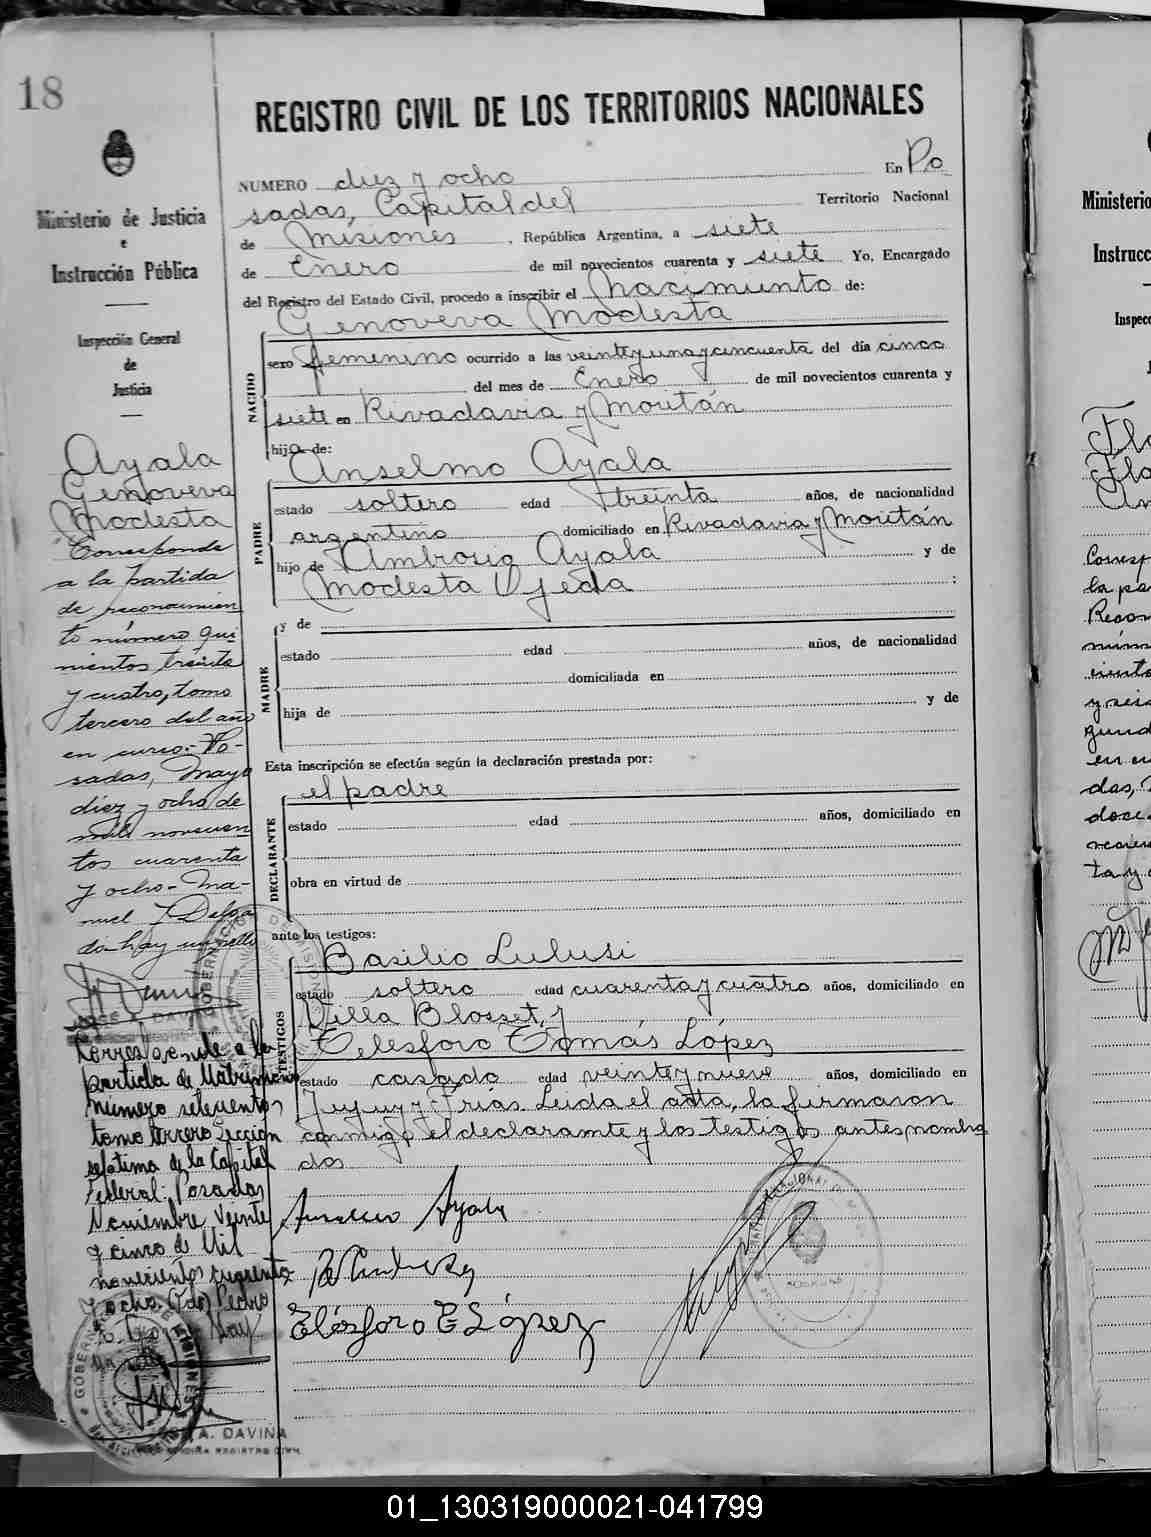 18
Ministerio de Justicia
e
Instrucción Pública
Inspección General
de
Justicia
Ayala
Genoveva
Modesta
Corresponde
a la partida
de reconocimien
to número qui
nientos treinta
y cuatro, tomo
tercero del año
en curso.- Po-
sadas, Mayo
diez y ocho de
mil novecien
tos cuarenta
y ocho - Ma-
nuel J Delga
do- hay un sello
Corresponde a la
partida de Matrimonio
número setecientos
tomo tercero Sección
séptima de la Capital
Federal: Posadas
Noviembre Veinte
y cinco de Mil
novecientos cuarenta
y ocho. (Fdo) Pedro
A. DAVIÑA
REGISTRO CIVIL DE LOS TERRITORIOS NACIONALES
NUMERO diez y ocho En Po
sadas, Capital del Territorio Nacional
de Misiones, República Argentina, a siete
de Enero de mil novecientos cuarenta y siete Yo, Encargado
del Registro del Estado Civil, procedo a inscribir el nacimiento de:
Genoveva Modesta
NACIDO
sexo femenino ocurrido a las veinte y una y cincuenta del día cinco
del mes de Enero de mil novecientos cuarenta y
siete en Rivadavia y Moután
hija de:
Anselmo Ayala
PADRE
estado soltero edad treinta años, de nacionalidad
argentino domiciliado en Rivadavia y Moután
hijo de Ambrosio Ayala y de
Modesta Ojeda :
MADRE
y de
estado edad años, de nacionalidad
domiciliada en
hija de y de
Esta inscripción se efectúa según la declaración prestada por:
el padre
DECLARANTE
estado edad años, domiciliado en
obra en virtud de
ante los testigos:
TESTIGOS
Basilio Lulusi
estado soltero edad cuarenta y cuatro años, domiciliado en
Villa Blosset, y
Telesforo Tomás López
estado casado edad veinte y nueve años, domiciliado en
Jujuy y Frías. Leida el acta, la firmaron
conmigo el declarante y los testigos antes nombra
dos
Anselmo Ayala
Elésforo T López
Ministerio
Instrucc
Inspecc
Flo
Flo
An
Corresp
la pa
Recon
núm
ciento
y seis
gund
en cu
das,
doce
ta y
01_130319000021-041799